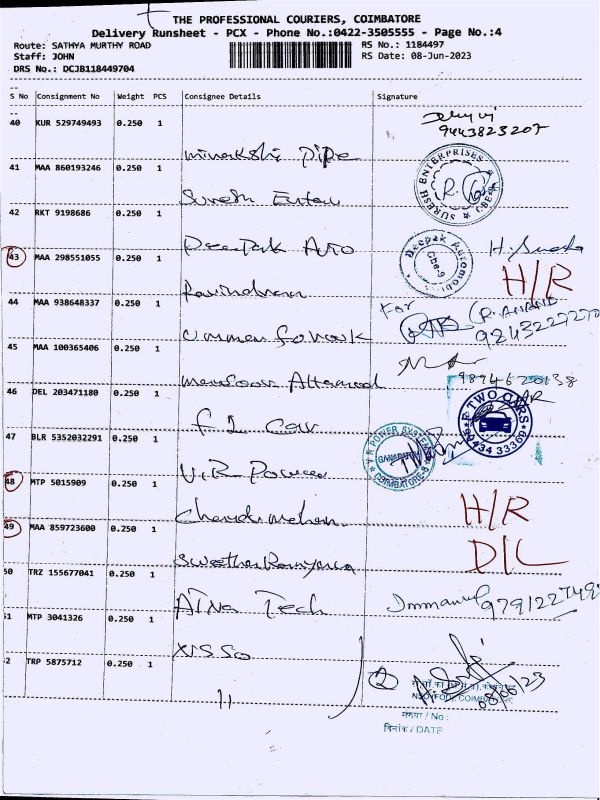 THE PROFESSIONAL COURIERS, COIMBATORE
Delivery Runsheet - PCX - Phone No.:0422-3505555 - Page No.:4
Route: SATHYA MURTHY ROAD
RS No.: 1184497
Staff: JOHN
RS Date: 08-Jun-2023
DRS No.: DCJB118449704
S No Consignment No Weight PCS Consignee Details Signature
40 KUR 529749493 0.250 1
9443823207
Minakshi Pipe
41 MAA 860193246 0.250 1
SURESH ENTERPRISES
Suresh Enter
42 RKT 9198686 0.250 1
Deepak Auto
Deepak Automobi
Cbe-9
43 MAA 298551055 0.250 1
H/R
Ravindran
44 MAA 938648337 0.250 1
For
R. ANAND
45 MAA 100365406 0.250 1
Mansoor Ahamed
9894620138
46 DEL 203471180 0.250 1
F 2 Car
F TWO CARS
90434 33369
47 BLR 5352032291 0.250 1
V.R POWER SYSTEM
GANAPATHY
COIMBATORE-6
V.R Power
48 MTP 5015909 0.250 1
H/R
Chandramohan
49 MAA 859723600 0.250 1
D/L
Swetha Ramya
50 TRZ 155677041 0.250 1
Atna Tech
Immanuel
51 MTP 3041326 0.250 1
NSSO
52 TRP 5875712 0.250 1
11
2
08/06/23
NSO (FOD), COIMBATORE
संख्या / No :
दिनांक / DATE